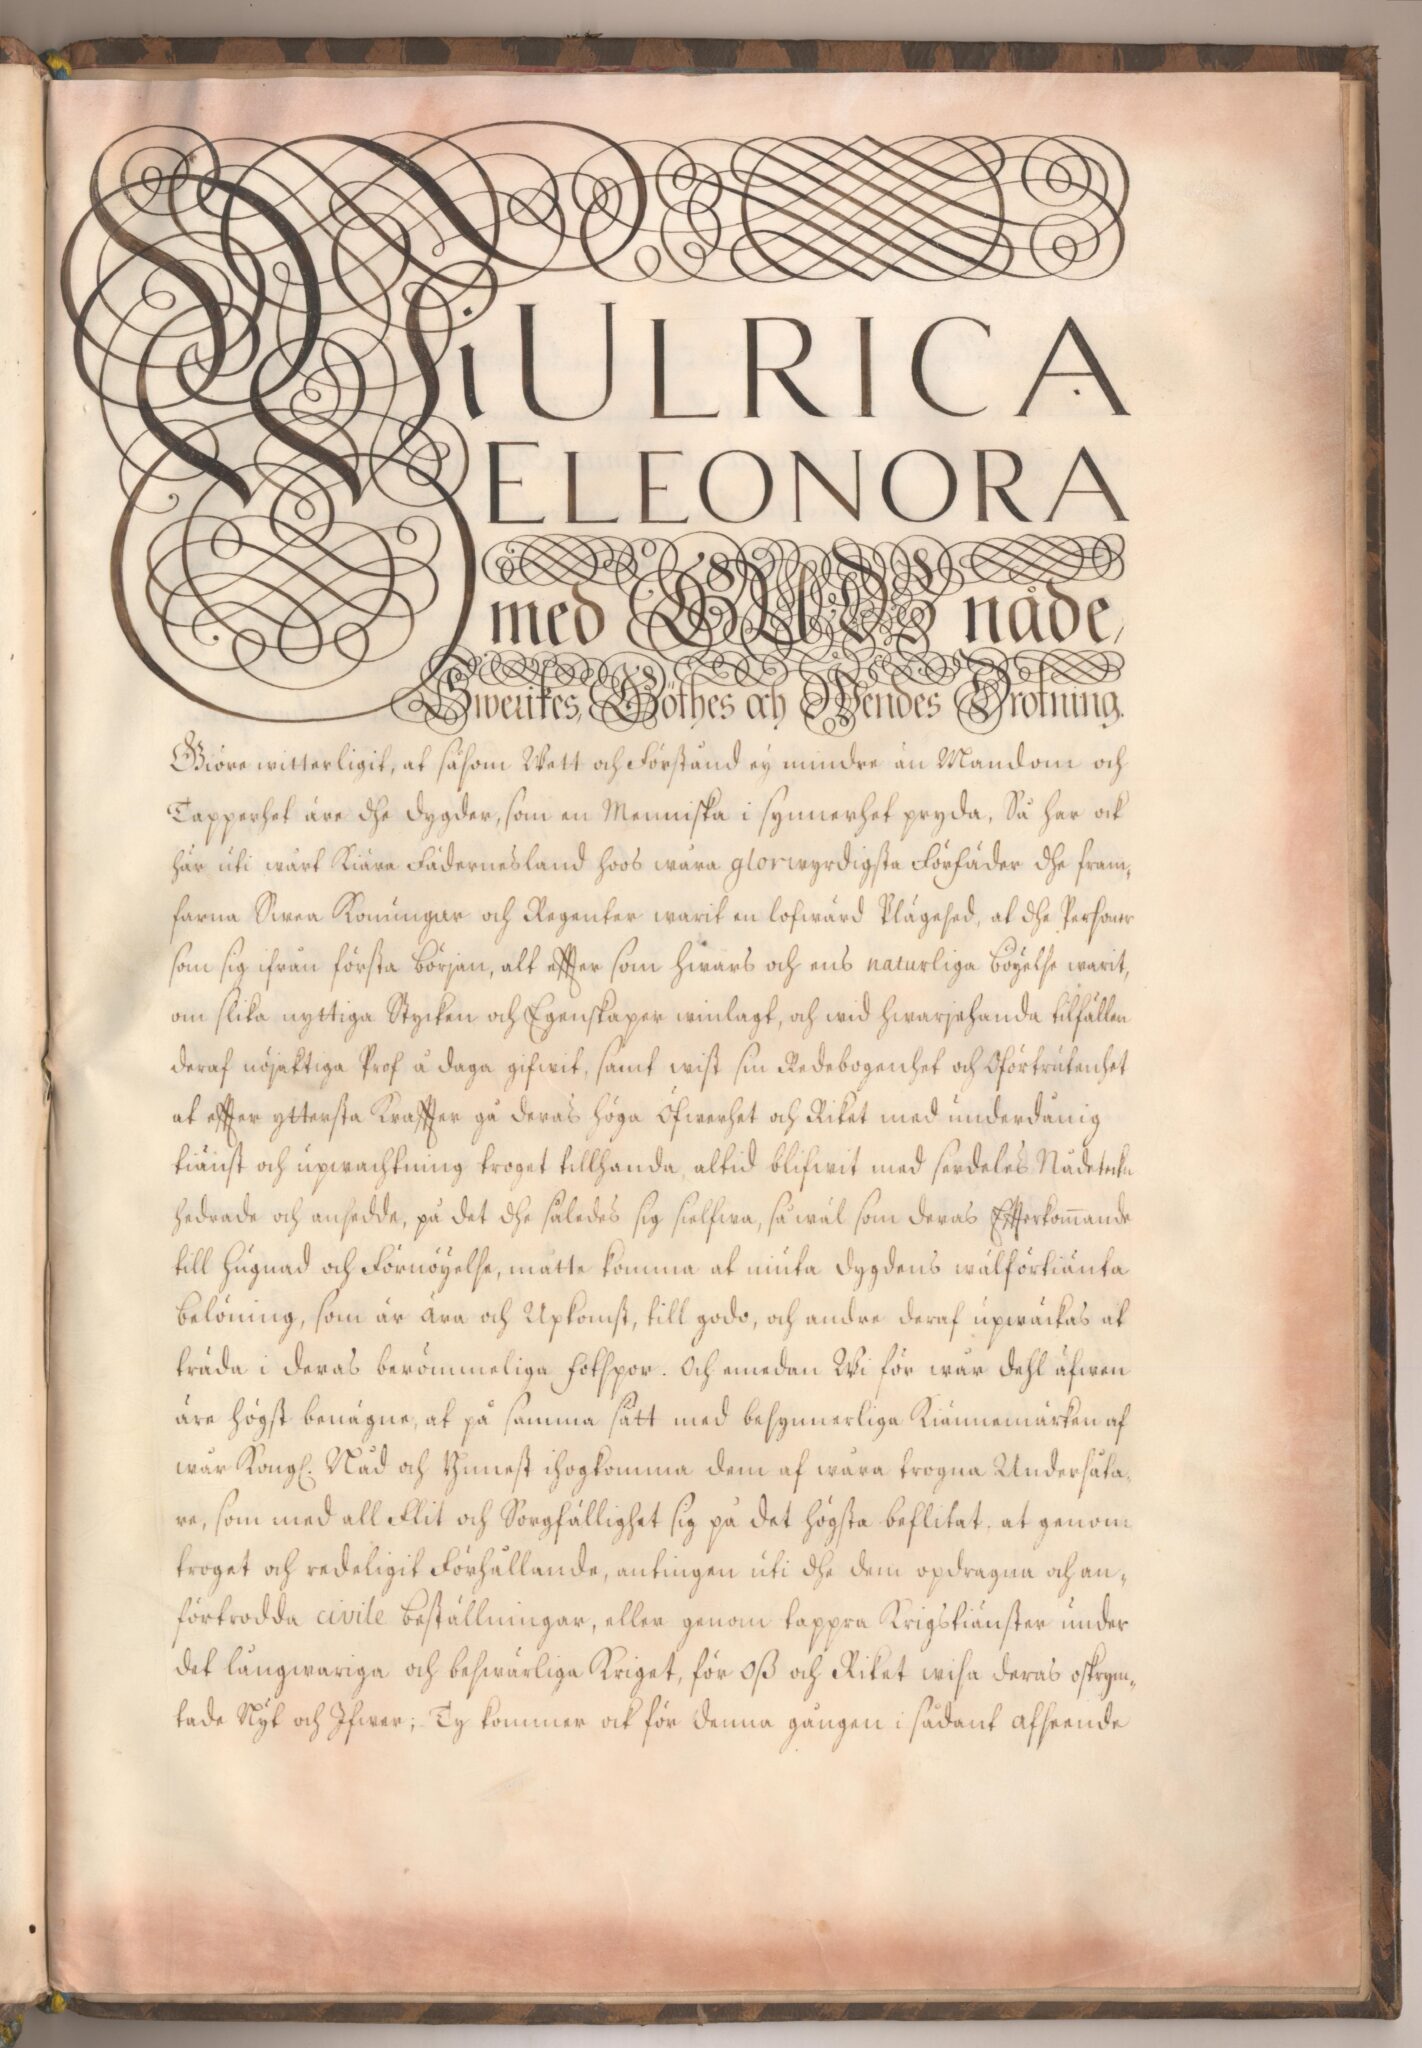 Wi ULRICA
ELEONORA
med GUDS nåde,
Swerikes, Göthes och Wendes Drotning.
Giöre witterligit, at såsom Wett och Förstånd ey mindre än Mandom och
Tapperhet äre dhe dygder, som en Menniska i synnerhet pryda, Så har ock
här uti wårt Kiära Fädernesland hoos wåra glorwyrdigsta Förfäder dhe fram-
farna Swea Konungar och Regenter warit en lofwärd Plägesed, at dhe Personer
som sig ifrån första Början, alt effter som hwars och ens naturliga böyelse warit,
om slika nyttiga Stycken och Egenskaper winlagt, och wid hwarjehanda tilfällen
deraf nöjaktiga Prof å daga gifwit, samt wist sin Redebogenhet och Oförtrutenhet
at effter yttersta Kraffter gå deras höga Öfwerhet och Riket med underdånig
tiänst och upwachtning troget tillhanda, altid blifwit med serdeles Nådetekn
hedrade och ansedde, på det dhe således sig sielfwa, så wäl som deras Effterkom̅ande
till hugnad och Förnöyelse, måtte komma at niuta dygdens wälförtiänta
belöning, som är ära och Upkomst, till godo, och andre deraf upwäckas at
träda i deras berömmeliga fotspor. Och emedan Wi för wår dehl äfwen
äre högst benägne, at på samma sätt med besynnerliga Kiännemärken af
wår Kongl. Nåd och Ynnest ihogkomma dem af wåra trogna Undersåta-
re, som med all Flit och Sorgfällighet sig på det högsta beflitat, at genom
troget och redeligit Förhållande, antingen uti dhe dem opdragna och an-
förtrodda civile beställningar, eller genom tappra Krigstiänster under
det långwariga och beswärliga Kriget, för Oß och Riket wisa deras oskrym-
tade Nyt och Ifwer; Ty kommer ock för denna gången i sådant afseende